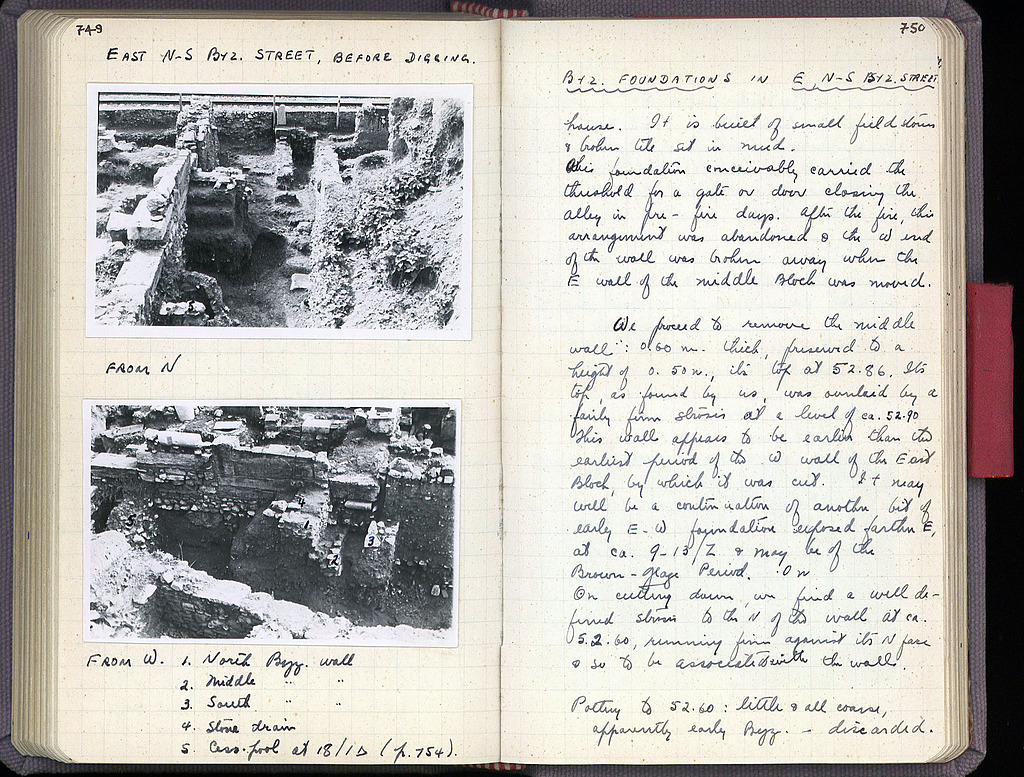 749
EAST N-S BYZ. STREET, BEFORE DIGGING.
FROM N
FROM W. 1. North Byz. wall
2. Middle " "
3. South " "
4. Stone drain
5. Cess-pool at 18/ΙΔ (p. 754).
750
BYZ. FOUNDATIONS IN E N-S BYZ. STREET
house. It is built of small field stones
& broken tile set in mud.
This foundation conceivably carried the
threshold for a gate or door closing the
alley in pre-fire days. After the fire, this
arrangement was abandoned & the W end
of the wall was broken away when the
E wall of the Middle Block was moved.
We proceed to remove the "middle
wall": 0.60 m. thick, preserved to a
height of 0.50 m., its top at 52.86. Its
top, as found by us, was overlaid by a
fairly firm strosis at a level of ca. 52.90
This wall appears to be earlier than the
earliest period of the W wall of the East
Block, by which it was cut. It may
well be a continuation of another bit of
early E-W foundation exposed farther E,
at ca. 9-13/Z & may be of the
Brown-Glaze Period. On
On cutting down, we find a well de-
fined strosis to the N of the wall at ca.
52.60, running firm against its N face
& so to be associated with the wall.
Pottery to 52.60: little & all coarse,
apparently early Byz. - discarded.